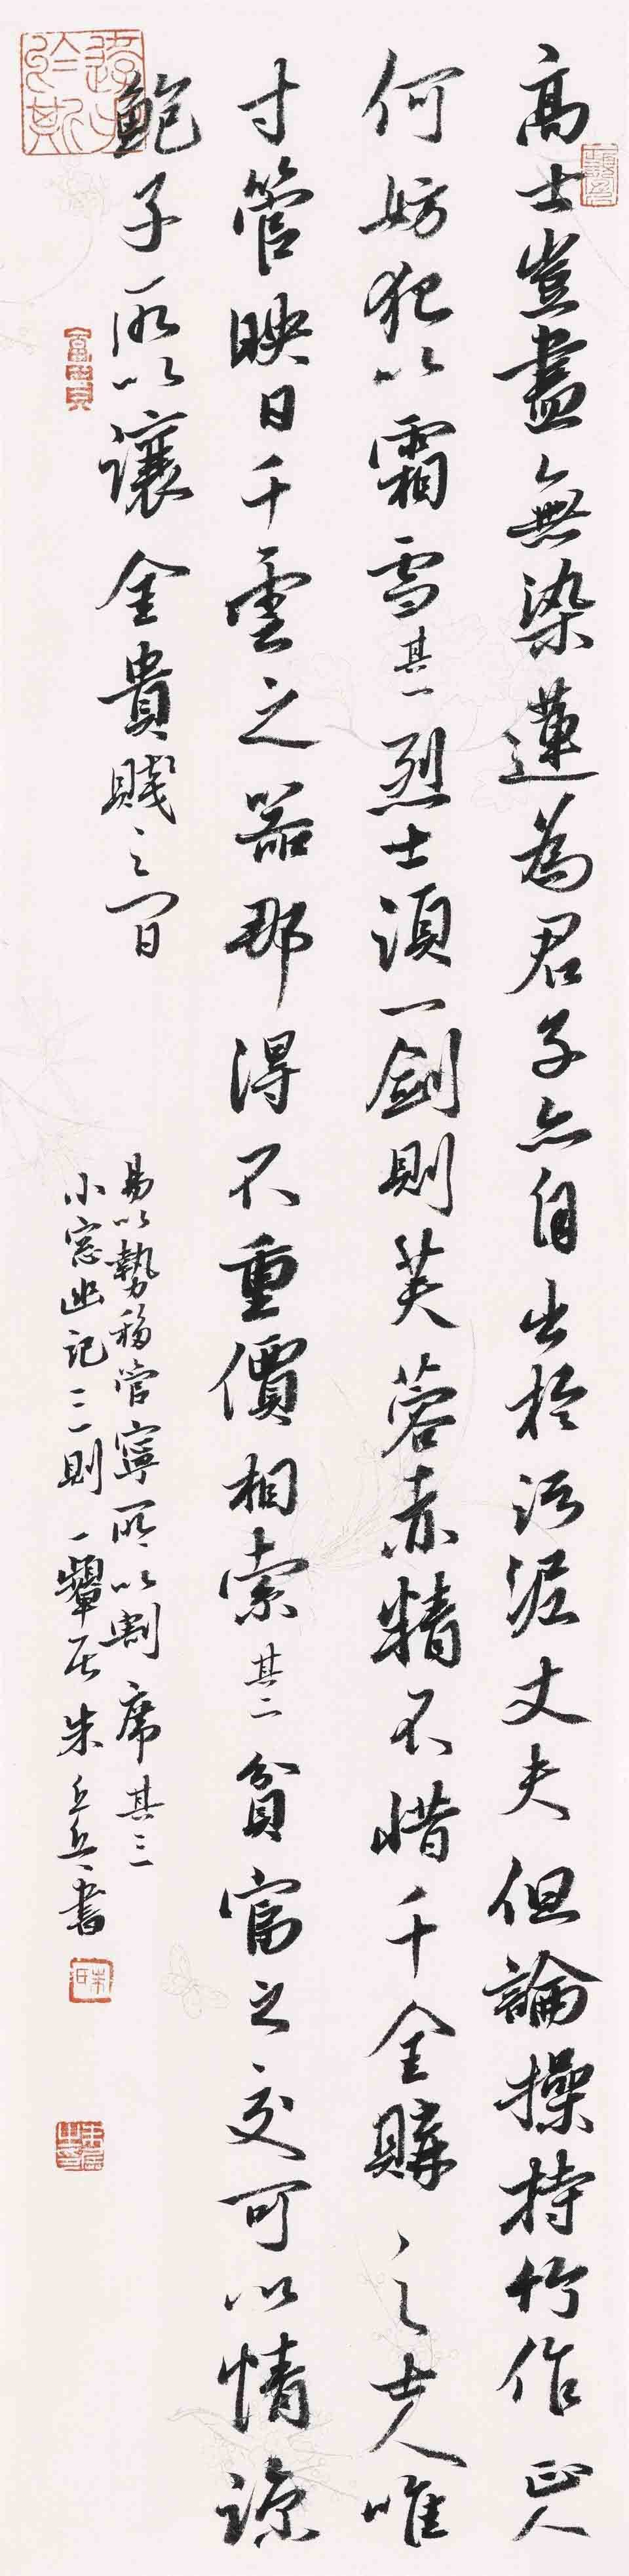 高士豈盡無染蓮為君子亦自出於污泥丈夫但論操持竹作正人
何妨犯以霜雪其一烈士須一劍則芙蓉赤精不惜千金購之士人唯
寸管映日干雲之器那得不重價相索其二貧富之交可以情諒
鮑子所以讓金貴賤之間
易以勢移管寧所以割席其三
小窗幽記三則一顰居朱乒乓書
富貴